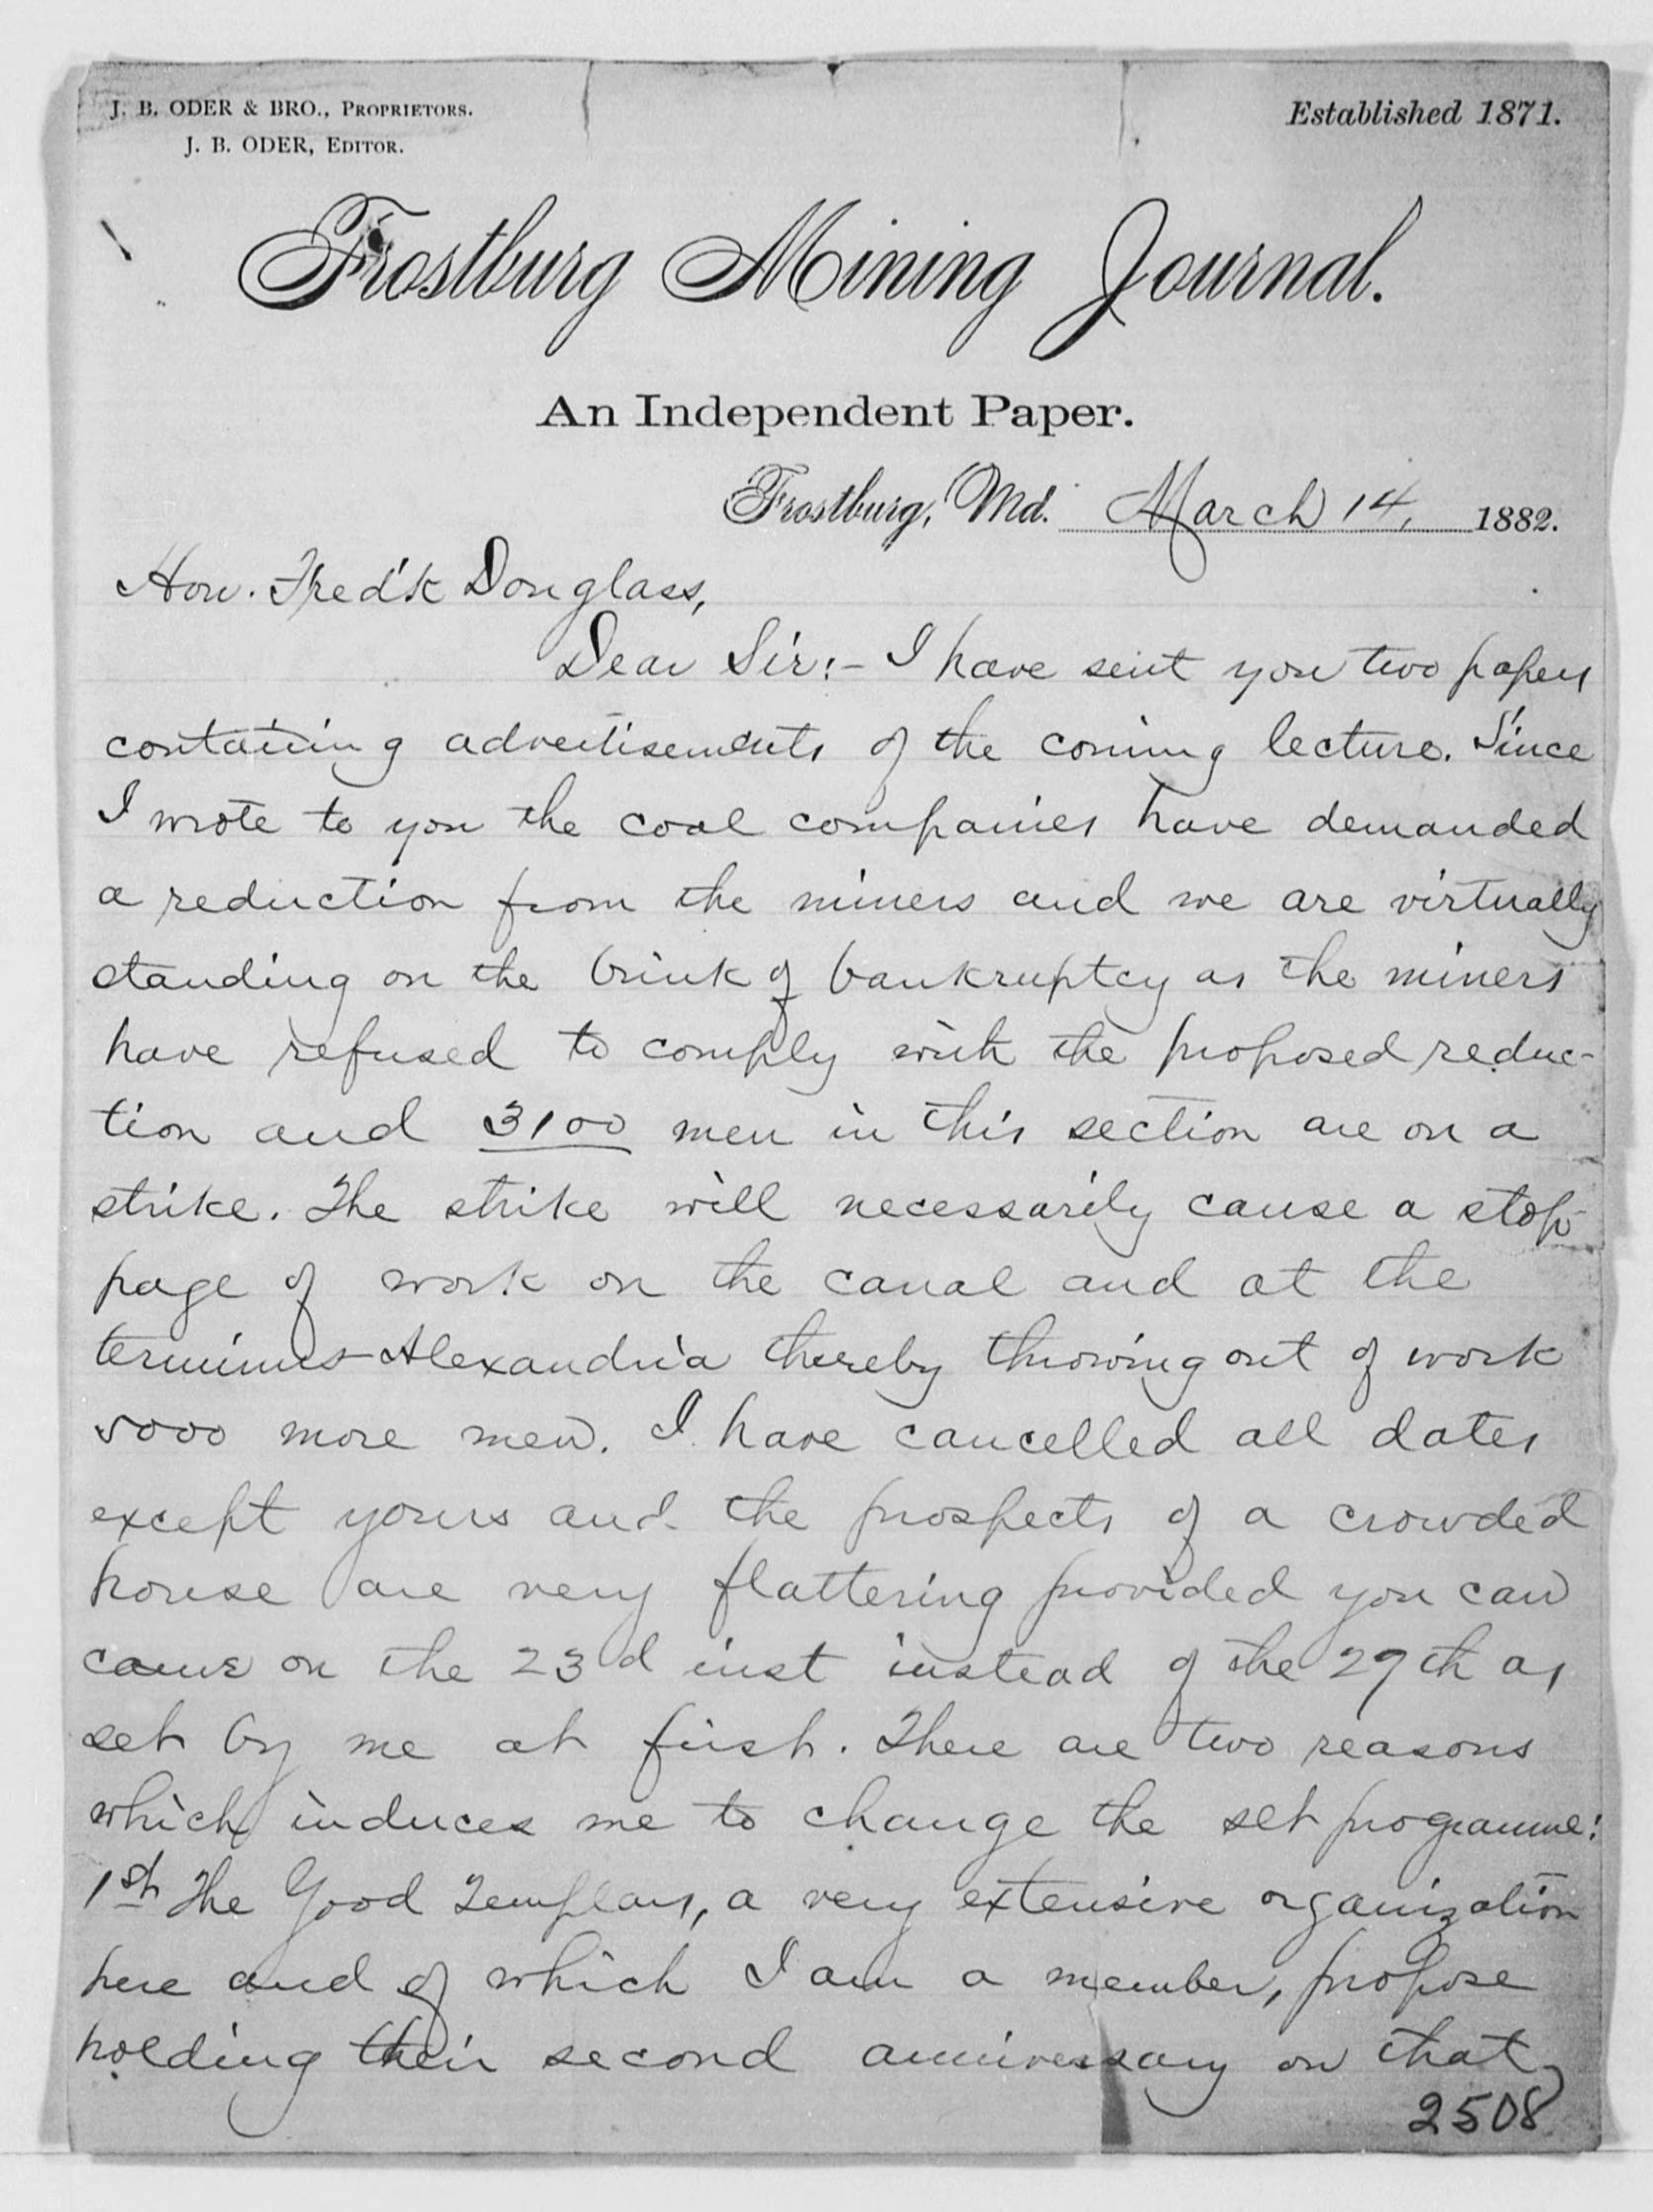 J. B. ODER & BRO., PROPRIETORS.
J. B. ODER, EDITOR.
Established 1871.
Frostburg Mining Journal.
An Independent Paper.
Frostburg, Md. March 14, 1882.
Hon. Fred'k Douglass,
Dear Sir:- I have sent you two papers
containing advertisements of the coming lecture. Since
I wrote to you the coal companies have demanded
a reduction from the miners and we are virtually
standing on the brink of bankruptcy as the miners
have refused to comply with the proposed reduc-
tion and 3100 men in this section are on a
strike. The strike will necessarily cause a stop-
page of work on the canal and at the
terminus-Alexandria thereby throwing out of work
5000 more men. I have cancelled all dates
except yours and the prospects of a crowded
house are very flattering provided you can
come on the 23d inst instead of the 29th as
set by me at first. There are two reasons
which induces me to change the set programme:
1st The Good Templars, a very extensive organization
here and of which I am a member, propose
holding their second anniversary on that
2508